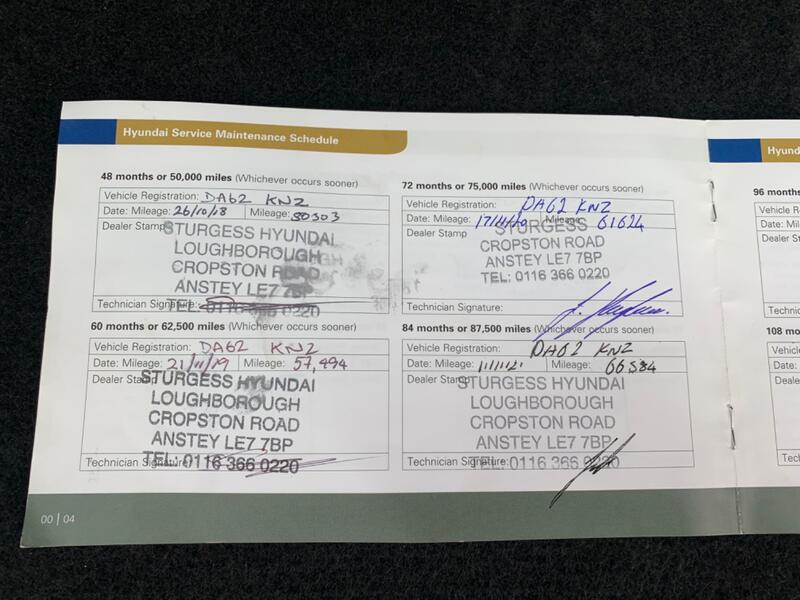 Hyundai Service Maintenance Schedule
48 months or 50,000 miles (Whichever occurs sooner)
Vehicle Registration: DA62 KNZ
Date: Mileage: 26/10/18 Mileage: 50303
Dealer Stamp
STURGESS HYUNDAI
LOUGHBOROUGH
CROPSTON ROAD
ANSTEY LE7 7BP
TEL: 0116 366 0220
Technician Signature:
60 months or 62,500 miles (Whichever occurs sooner)
Vehicle Registration: DA62 KNZ
Date: Mileage: 21/11/19 Mileage: 57,494
Dealer Stamp
STURGESS HYUNDAI
LOUGHBOROUGH
CROPSTON ROAD
ANSTEY LE7 7BP
TEL: 0116 366 0220
Technician Signature:
00 | 04
72 months or 75,000 miles (Whichever occurs sooner)
Vehicle Registration: DA62 KNZ
Date: Mileage: 17/11/20 Mileage: 61624
Dealer Stamp
STURGESS
CROPSTON ROAD
ANSTEY LE7 7BP
TEL: 0116 366 0220
Technician Signature:
84 months or 87,500 miles (Whichever occurs sooner)
Vehicle Registration: DA62 KNZ
Date: Mileage: Mileage: 66584
Dealer Stamp
STURGESS HYUNDAI
LOUGHBOROUGH
CROPSTON ROAD
ANSTEY LE7 7BP
TEL: 0116 366 0220
Technician Signature:
Hyund
96 months
Vehicle R
Date: M
Dealer St
Technici
108 mon
Vehicle
Date: M
Dealer S
Technici